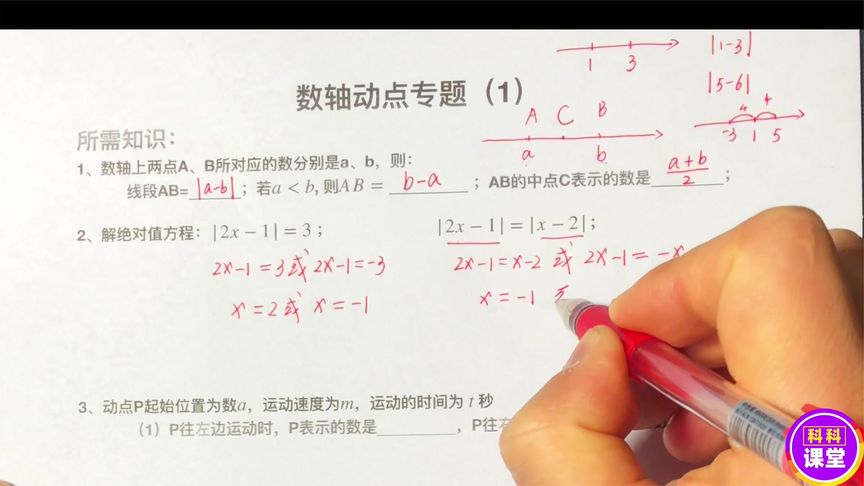 1 3 |1-3|
|5-6|
数轴动点专题（1）
A C B
a b
4 4
-3 1 5
所需知识：
1、数轴上两点A、B所对应的数分别是a、b，则：
线段AB=|a-b|；若a < b, 则AB = b-a；AB的中点C表示的数是 a+b/2；
2、解绝对值方程：|2x − 1| = 3； |2x − 1| = |x − 2|；
2x-1=3或2x-1=-3 2x-1=x-2 或 2x-1=-x
x=2或 x=-1 x=-1
3、动点P起始位置为数a，运动速度为m，运动的时间为 t 秒
（1）P往左边运动时，P表示的数是________，P往
科科
课堂